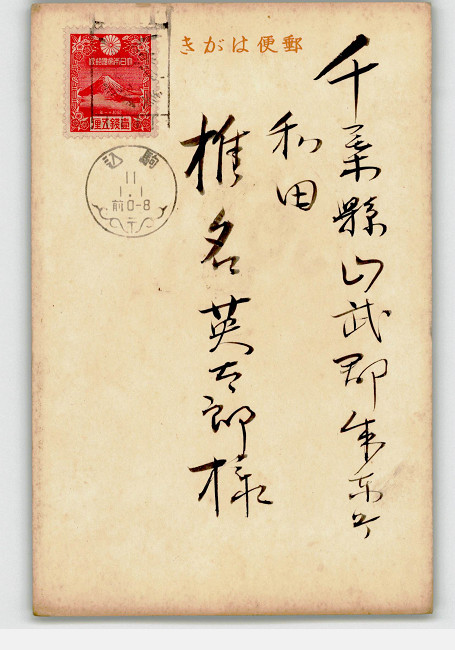 郵便はがき
千葉縣山武郡成東町
和田
椎名英太郎様
大日本帝國郵便
壹錢五厘
駒込
11
1.1
前0-8